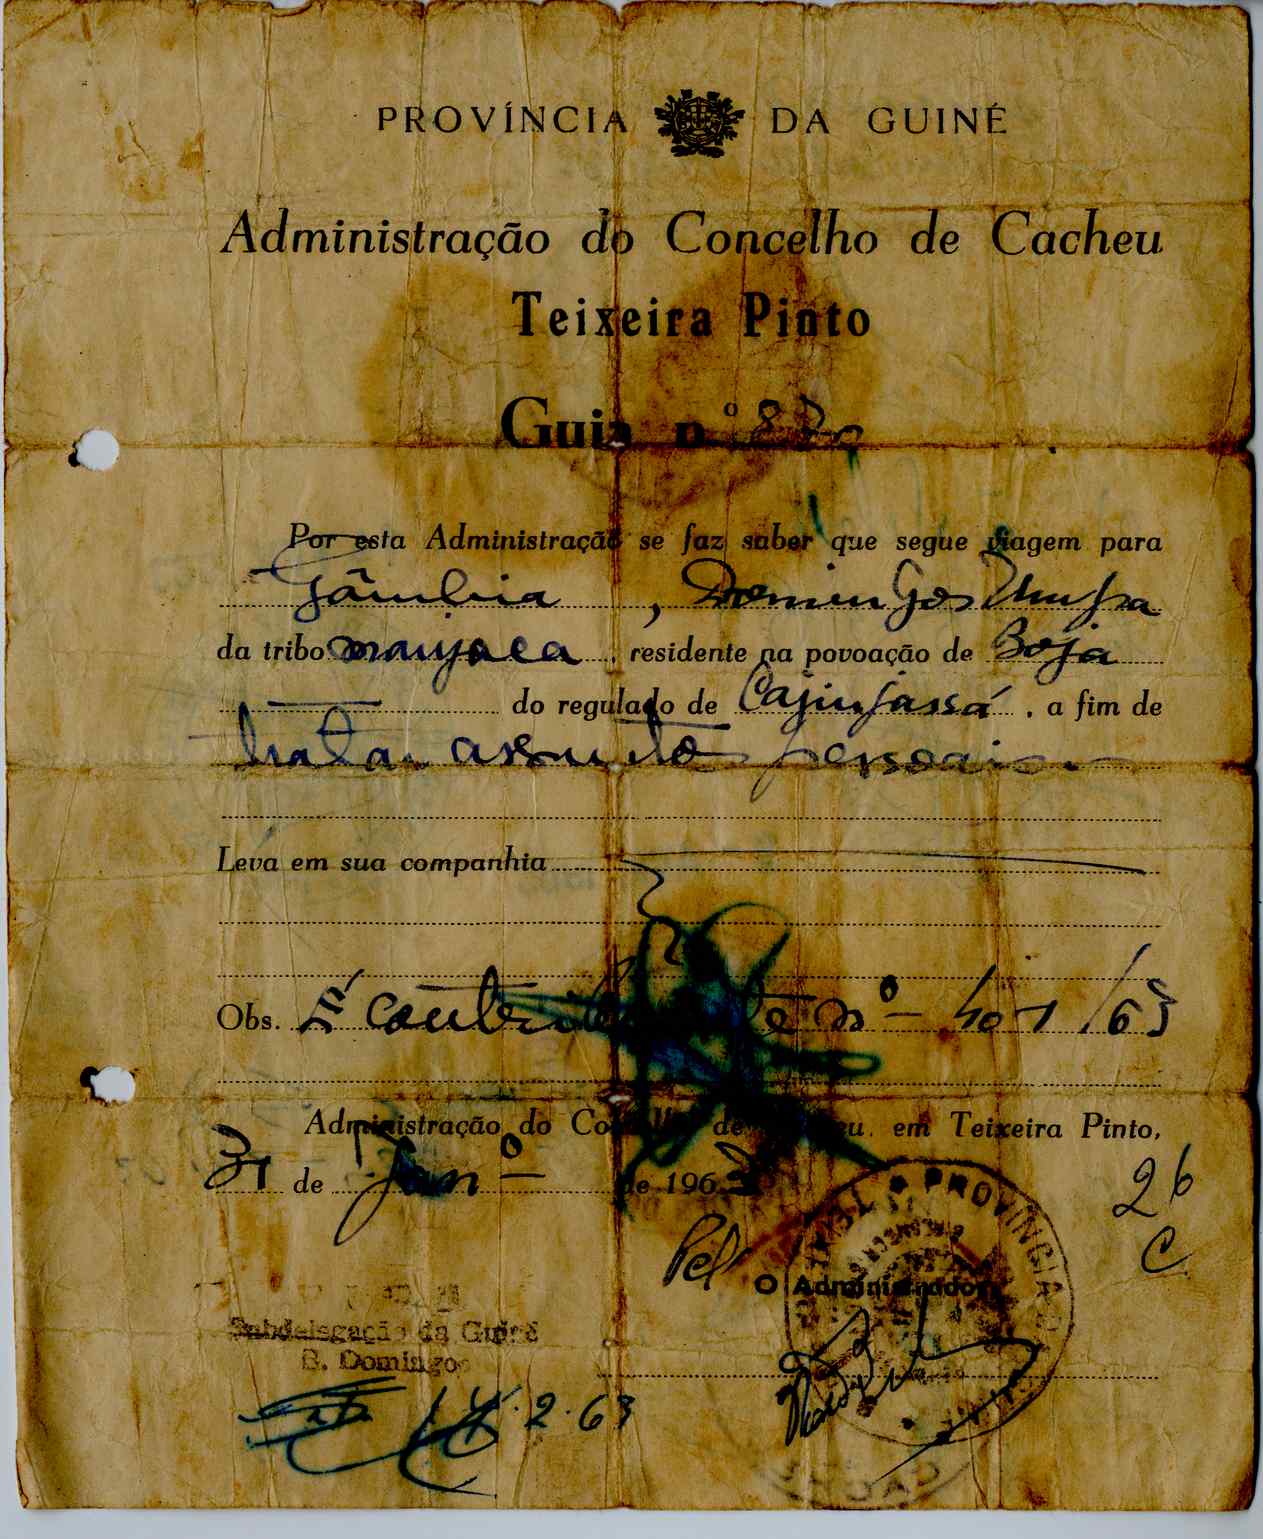 PROVÍNCIA DA GUINÉ
Administração do Concelho de Cacheu
Teixeira Pinto
Guia n.º 87
Por esta Administração se faz saber que segue viagem para
Gâmbia, Domingos
da tribo manjaca, residente na povoação de Boja
do regulado de Cajinjassá, a fim de
tratar assuntos pessoais
Leva em sua companhia
Obs. É contribuinte nº 401/63
Administração do Concelho de Cacheu, em Teixeira Pinto,
31 de Janº de 1963
26
C
Pel'
O Administrador,
PROVÍNCIA D
Subdelegação da Guiné
S. Domingos
14.2.63